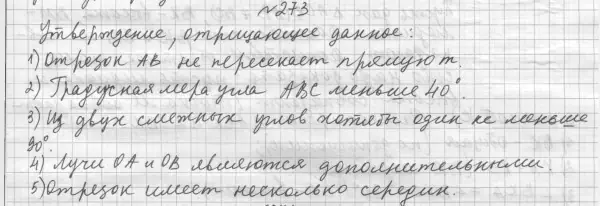 №273
Утверждение, отрицающее данное:
1) Отрезок АВ не пересекает прямую m.
2) Градусная мера угла АВС меньше 40°.
3) Из двух смежных углов хотябы один не меньше
90°.
4) Лучи ОА и ОВ являются дополнительными.
5) Отрезок имеет несколько середин.